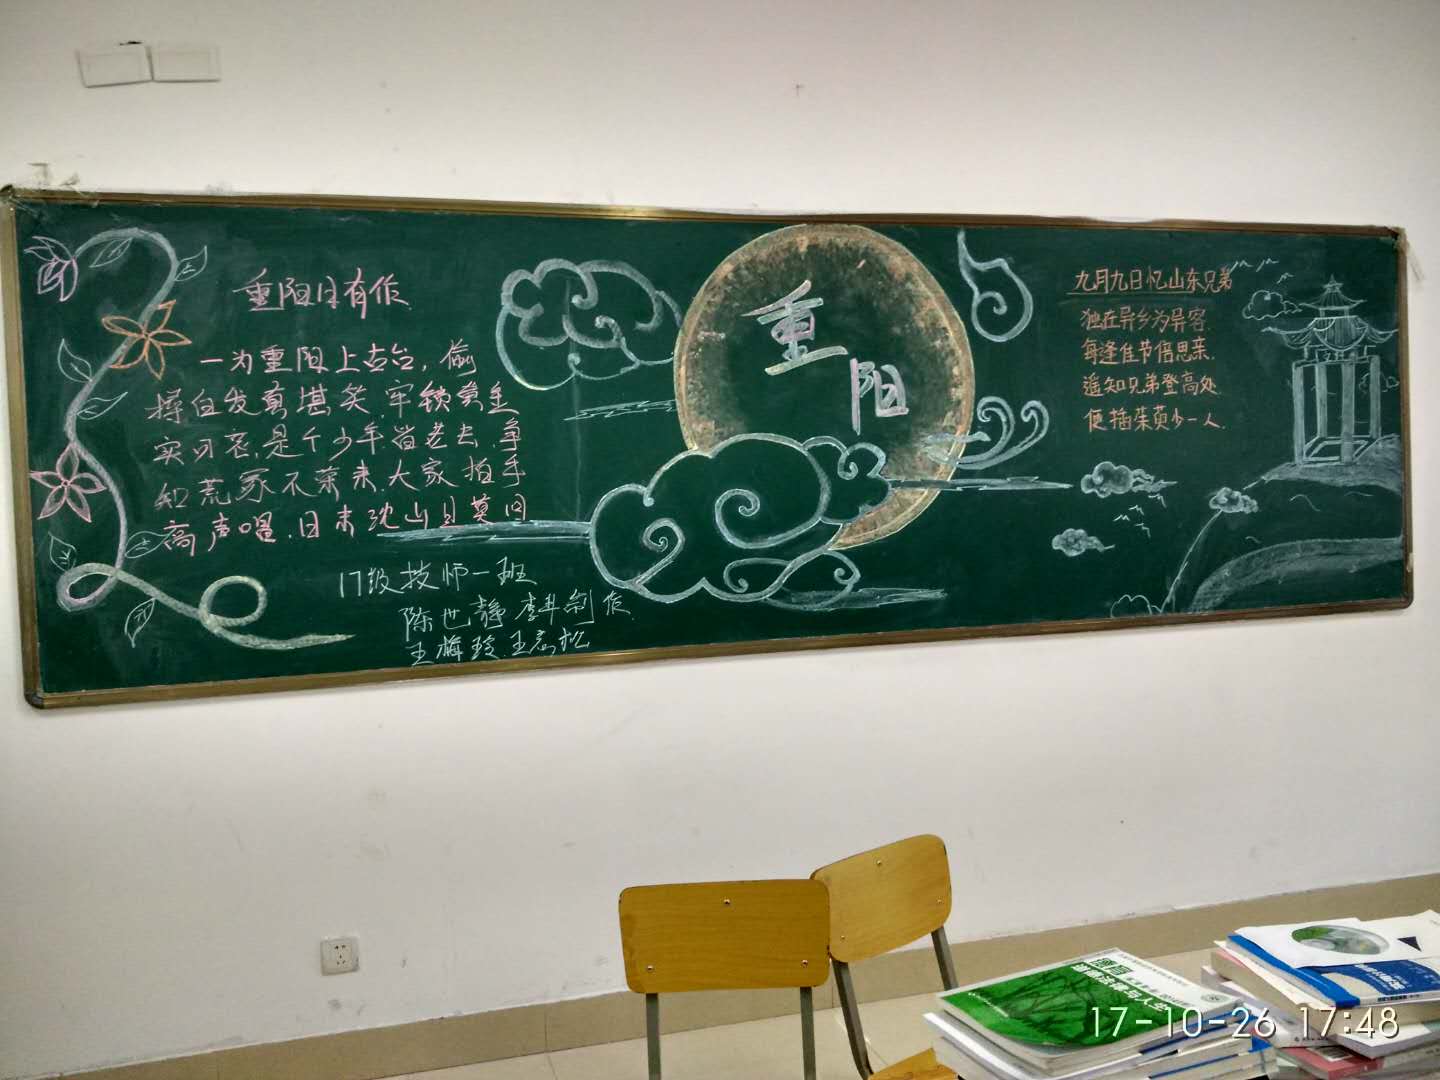 重阳日有作
一为重阳上古台，偷
择白发真堪笑，牢锁黄金
实可哀，是个少年皆老去，争
知荒冢不荣来，大家拍手
高声唱，日未沈山且莫回
17级技师一班
陈世静 制作
王梅玲、王
重
阳
九月九日忆山东兄弟
独在异乡为异客，
每逢佳节倍思亲，
遥知兄弟登高处，
便插茱萸少一人，
17-10-26 17:48